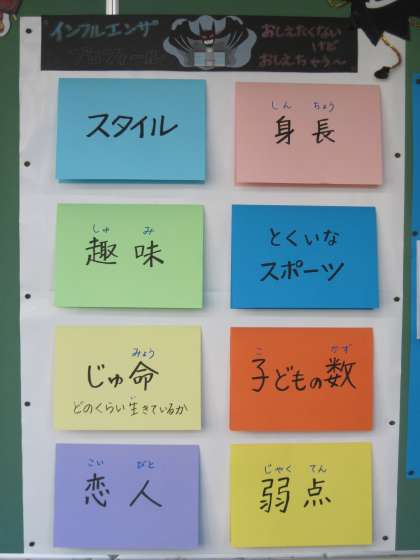 インフルエンザ
プロフィール
おしえたくない
けど
おしえちゃう～
スタイル
しん ちょう
身長
しゅ み
趣味
とくいな
スポーツ
みょう
じゅ命
どのくらい生きているか
こ かず
子どもの数
こい びと
恋人
じゃく てん
弱点